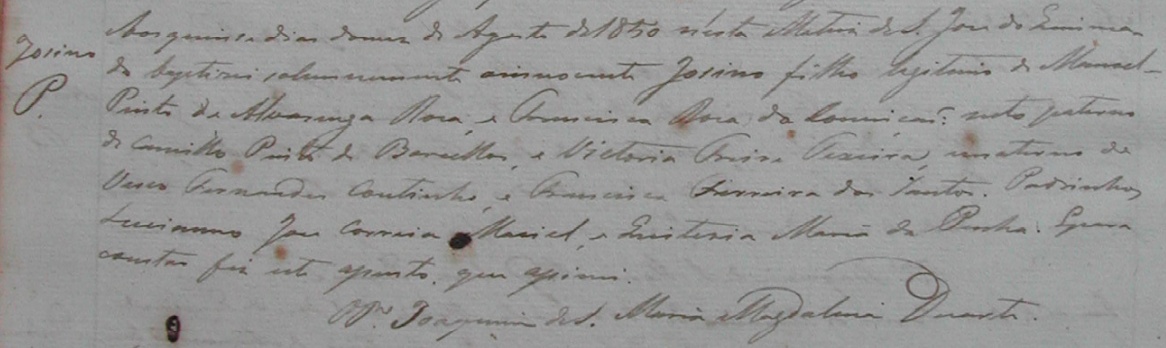 Josino
P.
Aos quinse dias do mez de Agosto de 1850 nésta Matriz de S. Jose do Queima-
do baptisei solemnemente o innocente Josino filho legitimo de Manoel
Pinto de Alvarenga Rosa, e Francisca Rosa da Conceiçaõ: neto paterno
de Camillo Pinto de Barcellos, e Victoria Freire Teixeira, materno de
Vasco Fernandes Coutinho, e Francisca Ferreira dos Santos. Padrinhos
Luciano Jose Correia Maciel, e Quiteria Maria da Penha. E para
constar fiz este assento, que assinei.
Joaquim de S. Maria Magdalena Duarte.